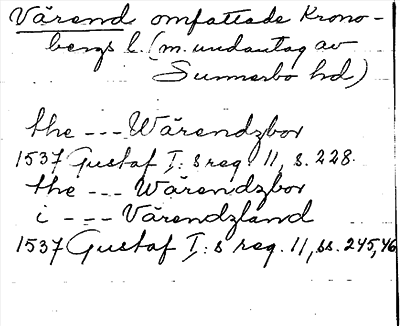 Värend omfattade Krono-
bergs l. (m. undantag av
Sunnerbo hd)
the --- Wärendzbor
1537 Gustaf I:s reg. 11, s. 228.
the --- Wärendzbor
i --- Värendzland
1537 Gustaf I:s reg. 11, ss. 245, 46